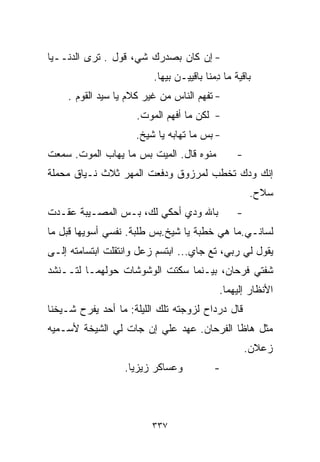 - إن كان بصدرك شي، قول . ترى الدنـــيا
باقية ما دمنا باقييـن بيها.
- تفهم الناس من غير كلام يا سيد القوم .
- لكن ما أفهم الموت.
- بس ما تهابه يا شيخ.
- منوه قال. الميت بس ما يهاب الموت. سمعت
إنك ودك تخطب لمرزوق ودفعت المهر ثلاث نـياق محملة
سلاح.
- بالله ودي أحكي لك، بـس المصـيبة عقـدت
لسانـي.ما هي خطبة يا شيخ.بس طلبة. نفسي أسويها قبل ما
يقول لي ربي، تع جاي... ابتسم زعل وانتقلت ابتسامته إلـى
شفتي فرحان، بيـنما سكتت الوشوشات حولهمـا لتــنشد
الأنظار إليهما.
قال درداح لزوجته تلك الليلة: ما أحد يفرح شـيخنا
مثل هاظا الفرحان. عهد علي إن جات لي الشيخة لأسـميه
زعلان.
- وعساكر زيزيا.
٣٣٧